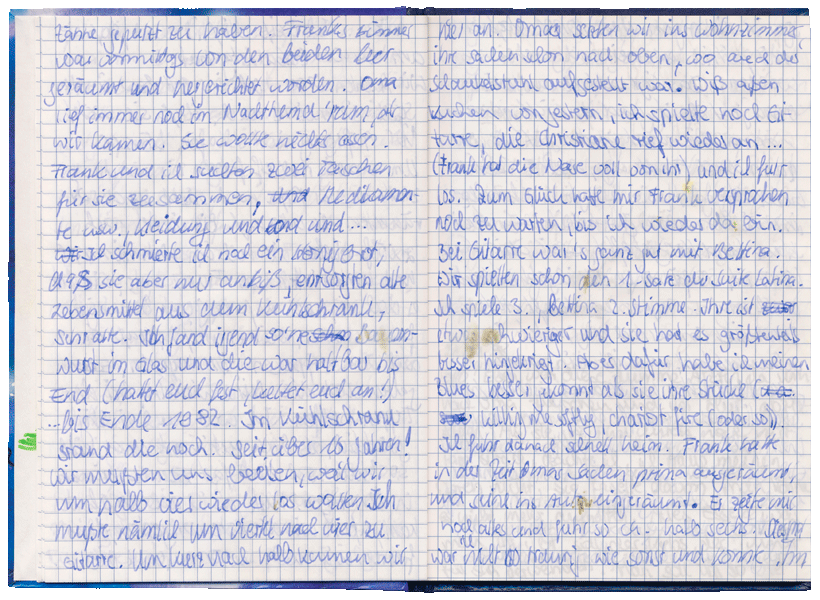 Zähne geputzt zu haben. Franks Zimmer
war vormittags von den beiden leer
geräumt und hergerichtet worden. Oma
lief immer noch im Nachthemd rum, als
wir kamen. Sie wollte nichts essen.
Frank und ich suchten zwei Taschen
für sie zusammen, und Medikamen-
te usw., Kleidung und und und ...
Ich schmierte ihr noch ein Honigbrot,
das sie aber nur anbiß, entsorgten alte
Lebensmittel aus dem Kühlschrank,
sehr alte. Ich fand irgend so'ne Bauern-
wurst im Glas und die war haltbar bis
End (haltet euch fest, haltet euch an!)
...bis Ende 1982. Im Kühlschrank
stand die noch. Seit über 15 Jahren!
Wir mußten uns beeilen, weil wir
um halb vier wieder los wollten. Ich
mußte nämlich um Viertel nach vier zu
Gitarre. Um kurz nach halb kamen wir
hier an. Omas setzten wir ins Wohnzimmer,
ihre Sachen schon nach oben, wo auch der
Schaukelstuhl aufgestellt war. Wir aßen
Kuchen von gestern, ich spielte noch Git
tarre, die Christiane rief wieder an ...
(Frank hat die Nase voll von ihr) und ich fuhr
los. Zum Glück hatte mir Frank versprochen
noch zu warten, bis ich wieder da bin.
Bei Gitarre war's ganz gut mit Bettina.
Wir spielten schon den 1. Satz der Suite Latina.
Ich spiele 3., Bettina 2. Stimme. Ihre ist
etwas schwieriger und sie hat es größtenteils
besser hingekriegt. Aber dafür habe ich meinen
Blues besser gekonnt als sie ihre Stücke
killing me softly, chariots fire (oder so)).
Ich fuhr danach schnell heim. Frank hatte
in der Zeit Omas Sachen prima ausgeräumt,
und seine ins Auto eingeräumt. Er zeigte mir
noch alles und fuhr so ch. halb sechs.
war nicht so traurig wie sonst und konnte. Im